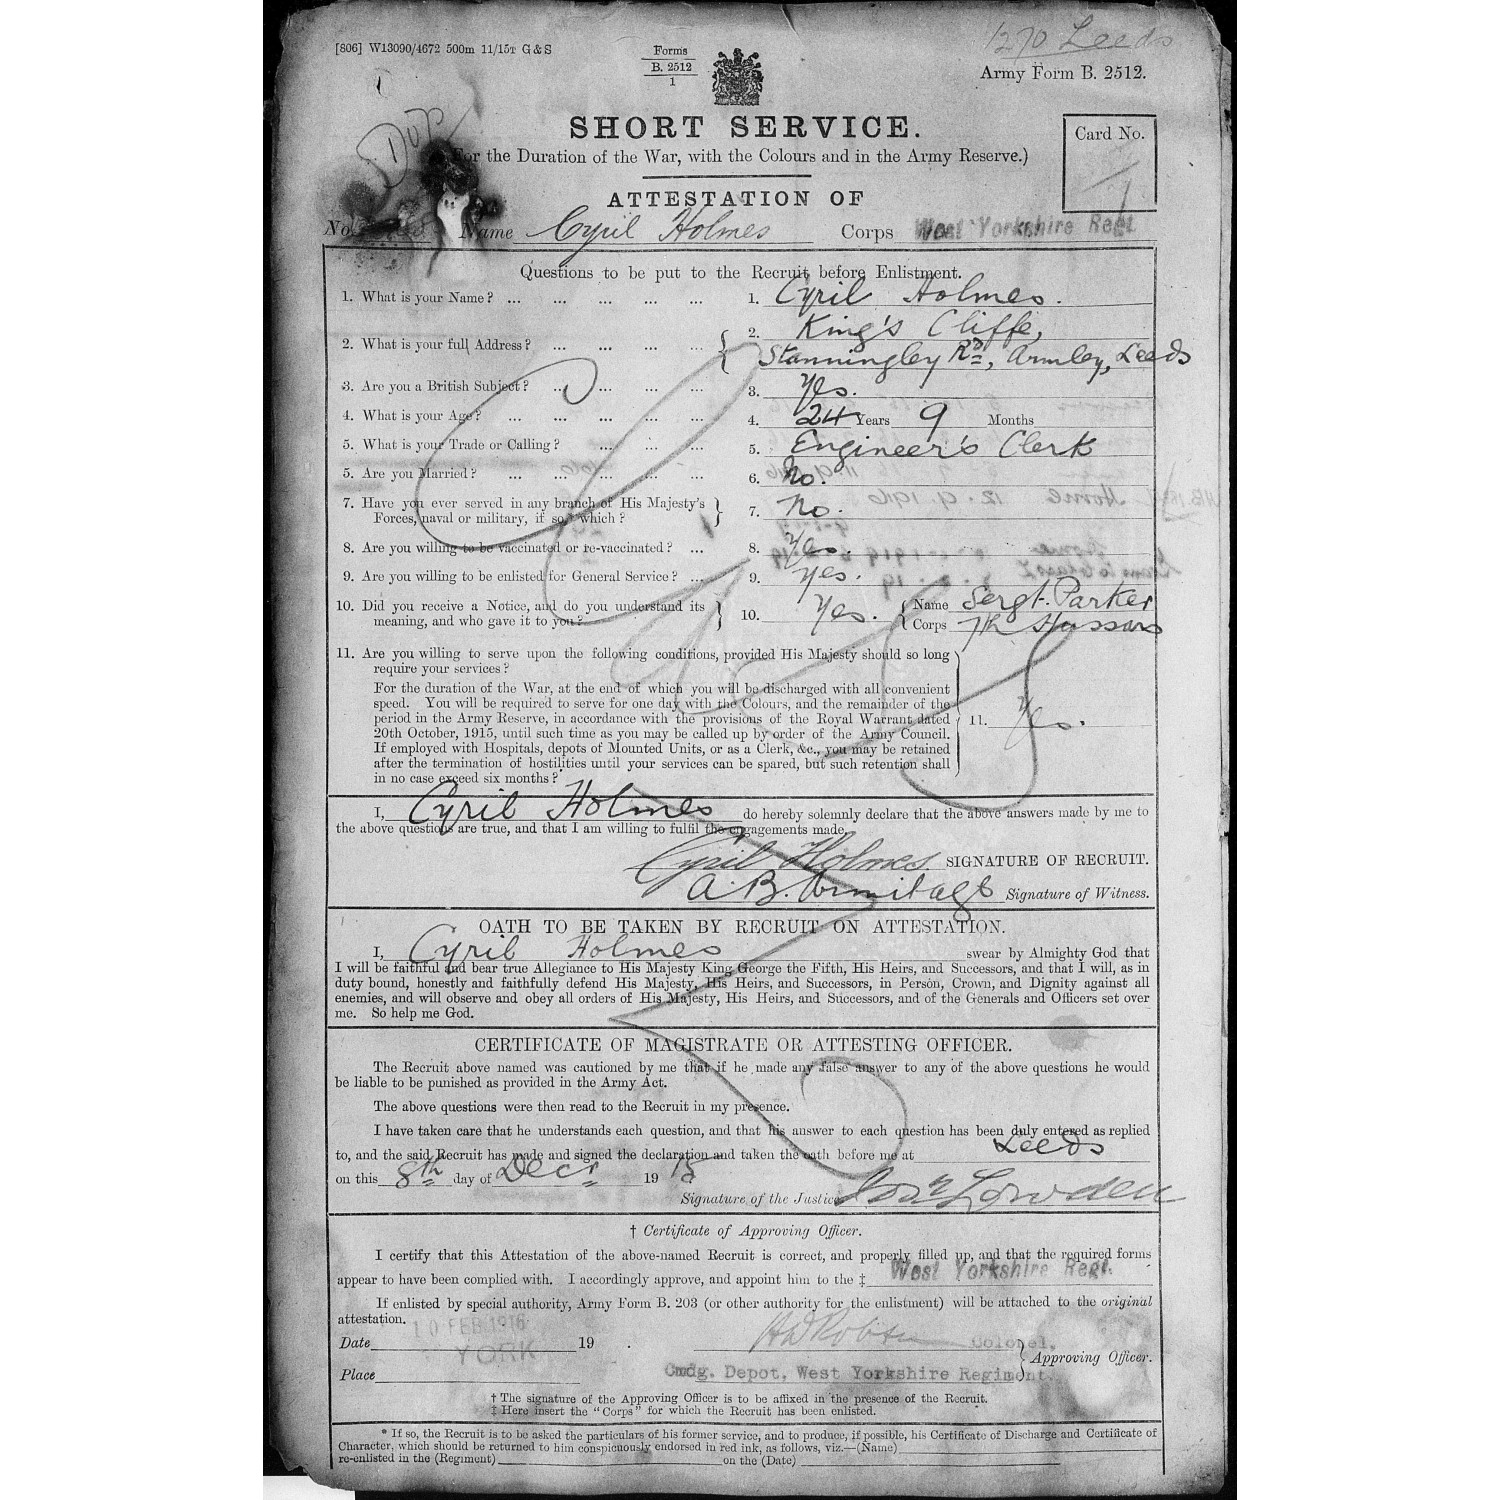 1270 Leeds
[806] W13090/4672 500m 11/15T G & S
Forms
B. 2512
1
Army Form B. 2512.
Dup
SHORT SERVICE.
For the Duration of the War, with the Colours and in the Army Reserve.)
Card No.
ATTESTATION OF
No. Name Cyril Holmes Corps West Yorkshire Regt
Questions to be put to the Recruit before Enlistment.
1. What is your Name? ... ... ... ... ... 1. Cyril Holmes.
2. What is your full Address? ... ... ... ... 2. King's Cliffe,
Stanningley Rd, Armley, Leeds
3. Are you a British Subject? ... ... ... ... 3. Yes.
4. What is your Age? ... ... ... ... ... 4. 24 Years 9 Months
5. What is your Trade or Calling? ... ... ... 5. Engineer's Clerk
5. Are you Married? ... ... ... ... ... 6. No.
7. Have you ever served in any branch of His Majesty's
Forces, naval or military, if so, which? 7. No.
8. Are you willing to be vaccinated or re-vaccinated? ... 8. Yes.
9. Are you willing to be enlisted for General Service? ... 9. Yes.
10. Did you receive a Notice, and do you understand its
meaning, and who gave it to you? 10. Yes. Name Sergt. Parker
Corps 7th Hussars
11. Are you willing to serve upon the following conditions, provided His Majesty should so long
require your services?
For the duration of the War, at the end of which you will be discharged with all convenient
speed. You will be required to serve for one day with the Colours, and the remainder of the
period in the Army Reserve, in accordance with the provisions of the Royal Warrant dated
20th October, 1915, until such time as you may be called up by order of the Army Council.
If employed with Hospitals, depots of Mounted Units, or as a Clerk, &c., you may be retained
after the termination of hostilities until your services can be spared, but such retention shall
in no case exceed six months? 11. Yes.
I, Cyril Holmes do hereby solemnly declare that the above answers made by me to
the above questions are true, and that I am willing to fulfil the engagements made.
Cyril Holmes. SIGNATURE OF RECRUIT.
A. B. Armitage Signature of Witness.
OATH TO BE TAKEN BY RECRUIT ON ATTESTATION.
I, Cyril Holmes swear by Almighty God that
I will be faithful and bear true Allegiance to His Majesty King George the Fifth, His Heirs, and Successors, and that I will, as in
duty bound, honestly and faithfully defend His Majesty, His Heirs, and Successors, in Person, Crown, and Dignity against all
enemies, and will observe and obey all orders of His Majesty, His Heirs, and Successors, and of the Generals and Officers set over
me. So help me God.
CERTIFICATE OF MAGISTRATE OR ATTESTING OFFICER.
The Recruit above named was cautioned by me that if he made any false answer to any of the above questions he would
be liable to be punished as provided in the Army Act.
The above questions were then read to the Recruit in my presence.
I have taken care that he understands each question, and that his answer to each question has been duly entered as replied
to, and the said Recruit has made and signed the declaration and taken the oath before me at Leeds
on this 8th day of Decr 1915
Signature of the Justice Lowden
† Certificate of Approving Officer.
I certify that this Attestation of the above-named Recruit is correct, and properly filled up, and that the required forms
appear to have been complied with. I accordingly approve, and appoint him to the ‡ West Yorkshire Regt.
If enlisted by special authority, Army Form B. 203 (or other authority for the enlistment) will be attached to the original
attestation.
Date 10 FEB 1916 19
YORK
Colonel,
Approving Officer.
Place
Cmdg. Depot, West Yorkshire Regiment.
† The signature of the Approving Officer is to be affixed in the presence of the Recruit.
‡ Here insert the "Corps" for which the Recruit has been enlisted.
* If so, the Recruit is to be asked the particulars of his former service, and to produce, if possible, his Certificate of Discharge and Certificate of
Character, which should be returned to him conspicuously endorsed in red ink, as follows, viz.—(Name)
re-enlisted in the (Regiment) on the (Date)